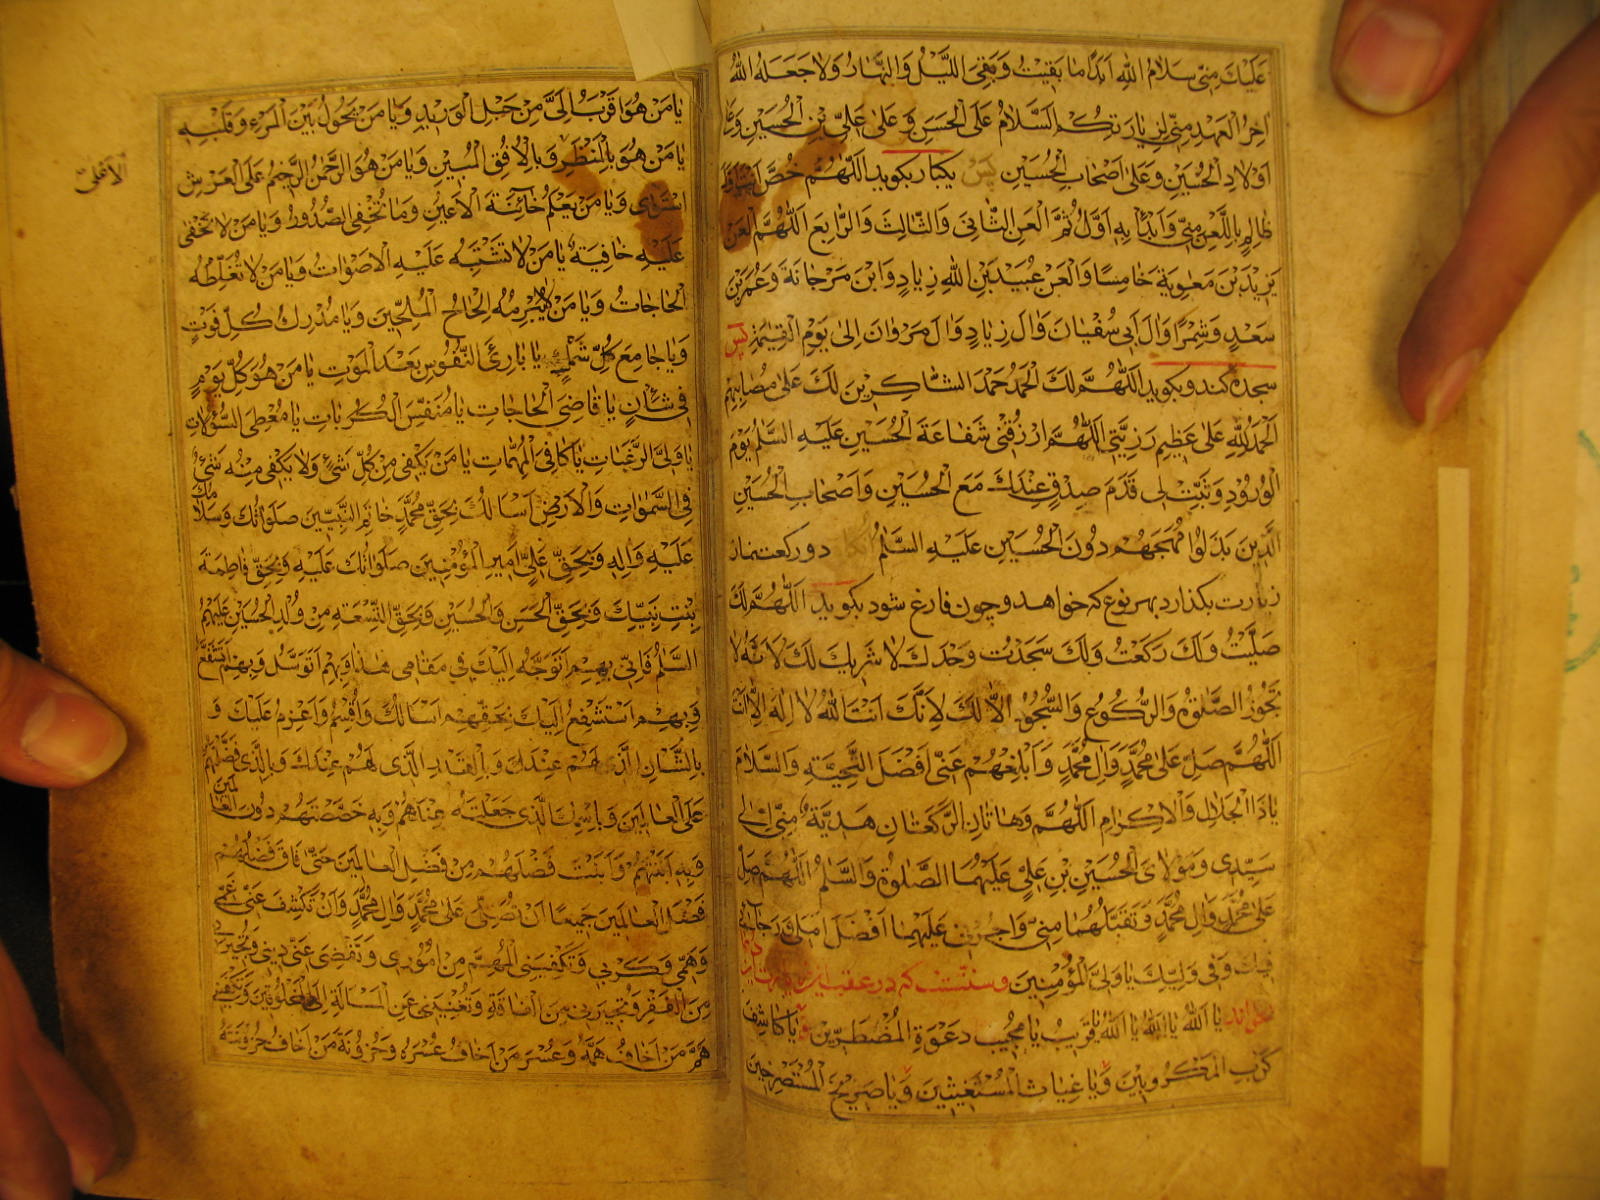 عَلَيْكَ مِنّي سَلامُ اللهِ اَبَدًا ما بَقِيتُ وَبَقِيَ اللَّيْلُ وَالنَّهارُ وَلا جَعَلَهُ اللهُ
اخِرَ الْعَهْدِ مِنّي لِزِيارَتِكُمْ اَلسَّلامُ عَلَى الْحُسَيْنِ وَعَلى عَلِيِّ بْنِ الْحُسَيْنِ وَعَلى
اَوْلادِ الْحُسَيْنِ وَعَلى اَصْحابِ الْحُسَيْنِ پس یکبار بکوید اَللّهُمَّ خُصَّ اَنْتَ اَوَّلَ
ظالِمٍ بِاللَّعْنِ مِنّي وَابْدَأْ بِهِ اَوَّلَ ثُمَّ الْعَنِ الثّانِيَ وَالثّالِثَ وَالرّابِعَ اَللّهُمَّ الْعَنْ
يَزِيدَ بْنَ مَعوِيَةَ خامِسًا وَالْعَنْ عُبَيْدَ بْنَ اللهِ زِيادٍ وَابْنَ مَرْجانَةَ وَعُمَرَ بْنَ
سَعْدٍ وَشِمْرًا وَالَ اَبي سُفْيانَ وَالَ زِيادٍ وَالَ مَرْوانَ اِلى يَوْمِ الْقِيمَةِ پس
سجده کند و بکوید اَللّهُمَّ لَكَ الْحَمْدُ حَمْدَ الشّاكِرِينَ لَكَ عَلى مُصابِهِمْ
اَلْحَمْدُ لِلّهِ عَلى عَظِيمِ رَزِيَّتي اَللّهُمَّ ارْزُقْني شَفاعَةَ الْحُسَيْنِ عَلَيْهِ السَّلمُ يَوْمَ
الْوُرُودِ وَثَبِّتْ لي قَدَمَ صِدْقٍ عِنْدَكَ مَعَ الْحُسَيْنِ وَاَصْحابِ الْحُسَيْنِ
الَّذِينَ بَذَلُوا مُهَجَهُمْ دُونَ الْحُسَيْنِ عَلَيْهِ السَّلمُ انکاه دو رکعت نماز
زیارت بکذارد بهر نوع که خواهد و چون فارغ شود بکوید اَللّهُمَّ لَكَ
صَلَّيْتُ وَلَكَ رَكَعْتُ وَلَكَ سَجَدْتُ وَحْدَكَ لا شَرِيكَ لَكَ لاَنَّهُ لا
تَجُوزُ الصَّلوةُ وَالرُّكُوعُ وَالسُّجُودُ اِلاّ لَكَ لاَنَّكَ اَنْتَ اللهُ لا اِلهَ اِلاّ اَنْتَ
اَللّهُمَّ صَلِّ عَلى مُحَمَّدٍ وَالِ مُحَمَّدٍ وَاَبْلِغْهُمْ عَنّي اَفْضَلَ التَّحِيَّةِ وَالسَّلامَ
يا ذَا الْجَلالِ وَالاِكْرامِ اَللّهُمَّ وَهاتانِ الرَّكْعَتانِ هَدِيَّةٌ مِنّي اِلى
سَيِّدي وَمَوْلايَ الْحُسَيْنِ بْنِ عَلِيٍّ عَلَيْهِمَا الصَّلوةُ وَالسَّلمُ اَللّهُمَّ صَلِّ
عَلى مُحَمَّدٍ وَالِ مُحَمَّدٍ وَتَقَبَّلْهُما مِنّي وَاجْزِني عَلَيْهِما اَفْضَلَ اَمَلي وَرَجائي
فيكَ وَفي وَلِيِّكَ يا وَلِيَّ الْمُؤْمِنِينَ وسنتست که در عقب این زیارت
بخواند يا اَللهُ يا اَللهُ يا اَللهُ يا قَرِيبُ يا مُجِيبَ دَعْوَةِ الْمُضْطَرِّينَ وَ يا كاشِفَ
كَرْبِ الْمَكْرُوبِينَ وَيا غِياثَ الْمُسْتَغِيثِينَ وَيا صَرِيخَ الْمُسْتَصْرِخِينَ
يا مَنْ هُوَ اَقْرَبُ اِلَيَّ مِنْ حَبْلِ الْوَرِيدِ وَيا مَنْ يَحُولُ بَيْنَ الْمَرْءِ وَقَلْبِهِ
يا مَنْ هُوَ بِالْمَنْظَرِ وَبِالاُفُقِ الْمُبِينِ وَيا مَنْ هُوَ الرَّحْمنُ الرَّحِيمُ عَلَى الْعَرْشِ
الاَعْلى
اسْتَوى وَيا مَنْ يَعْلَمُ خائِنَةَ الاَعْيُنِ وَما تُخْفِي الصُّدُورُ وَيا مَنْ لا تَخْفى
عَلَيْهِ خافِيَةٌ يا مَنْ لا تَشْتَبِهُ عَلَيْهِ الاَصْواتُ وَيا مَنْ لا تُغَلِّطُهُ
الْحاجاتُ وَيا مَنْ لا يُبْرِمُهُ اِلْحاحُ الْمُلِحِّينَ وَيا مُدْرِكَ كُلِّ فَوْتٍ
وَيا جامِعَ كُلِّ شَمْلٍ يا بارِئَ النُّفُوسِ بَعْدَ الْمَوْتِ يا مَنْ هُوَ كُلَّ يَوْمٍ
في شَأنٍ يا قاضِيَ الْحاجاتِ يا مُنَفِّسَ الْكُرُباتِ يا مُعْطِيَ السُّؤُلاتِ
يا وَلِيَّ الرَّغَباتِ يا كافِيَ الْمُهِمّاتِ يا مَنْ يَكْفي مِنْ كُلِّ شَيْءٍ وَلا يَكْفي مِنْهُ شَيْءٌ
فِي السَّمواتِ وَالاَرْضِ اَسْاَلُكَ بِحَقِّ مُحَمَّدٍ خاتِمِ النَّبِيِّينَ صَلَواتُكَ وَسَلامُكَ
عَلَيْهِ وَالِهِ وَبِحَقِّ عَلِيٍّ اَمِيرِ الْمُؤْمِنِينَ صَلَواتُكَ عَلَيْهِ وَبِحَقِّ فاطِمَةَ
بِنْتِ نَبِيِّكَ وَبِحَقِّ الْحَسَنِ وَالْحُسَيْنِ وَبِحَقِّ التِّسْعَةِ مِنْ وُلْدِ الْحُسَيْنِ عَلَيْهِمُ
السَّلمُ فَاِنّي بِهِمْ اَتَوَجَّهُ اِلَيْكَ في مَقامي هذا وَبِهِمْ اَتَوَسَّلُ وَبِهِمْ اَتَشَفَّعُ
وَبِهِمْ اَسْتَشْفِعُ اِلَيْكَ بِحَقِّهِمْ اَسْاَلُكَ وَاُقْسِمُ وَاَعْزِمُ عَلَيْكَ وَ
بِالشَّانِ الَّذي لَهُمْ عِنْدَكَ وَبِالْقَدْرِ الَّذي لَهُمْ عِنْدَكَ وَبِالَّذي فَضَّلْتَهُمْ
عَلَى الْعالَمِينَ وَبِاسْمِكَ الَّذي جَعَلْتَهُ عِنْدَهُمْ وَبِهِ خَصَصْتَهُمْ دُونَ الْعالَمِينَ
وَبِهِ اَبَنْتَهُمْ وَاَبَنْتَ فَضْلَهُمْ مِنْ فَضْلِ الْعالَمِينَ حَتّى فاقَ فَضْلُهُمْ
فَضْلَ الْعالَمِينَ جَمِيعًا اَنْ تُصَلِّيَ عَلى مُحَمَّدٍ وَالِ مُحَمَّدٍ وَاَنْ تَكْشِفَ عَنّي غَمّي
وَهَمّي وَكَرْبي وَتَكْفِيَنِي الْمُهِمَّ مِنْ اُمُوري وَتَقْضِيَ عَنّي دَيْني وَتُجِيرَني
مِنَ الْفَقْرِ وَتُجِيرَني مِنَ الْفاقَةِ وَتُغْنِيَني عَنِ الْمَسْاَلَةِ اِلَى الْمَخْلُوقِينَ وَتَكْفِيَني
هَمَّ مَنْ اَخافُ هَمَّهُ وَعُسْرَ مَنْ اَخافُ عُسْرَهُ وَحُزُونَةَ مَنْ اَخافُ حُزُونَتَهُ